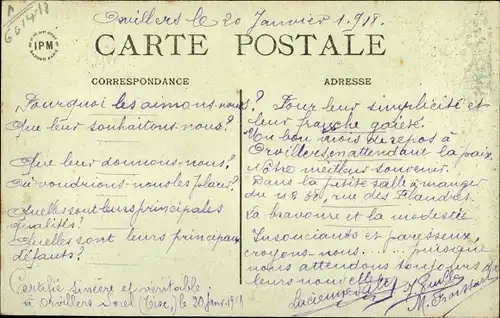 Orvillers le 20 Janvier 1918.
G614-18
IPM
CARTE POSTALE
CORRESPONDANCE
ADRESSE
Pourquoi les aimons-nous?
Que leur souhaitons-nous?
Que leur donnons-nous?
Où voudrions-nous les placer?
Quelles sont leurs principales
qualités?
Quelles sont leurs principaux
défauts?
Certifié sincère et véritable
à Orvillers Sorel (Oise), le 20 Janv. 1918
Pour leur simplicité et
leur franche gaieté.
Un bon mois de repos à
Orvillers, en attendant la paix
Nôtre meilleur souvenir.
Dans la petite salle à manger
du n° 38, rue des Flandres.
La bravoure et la modestie
Insouciants et paresseux,
croyons-nous..... puisque
nous attendons toujours de
leurs nouvelles
Lucienne
M.